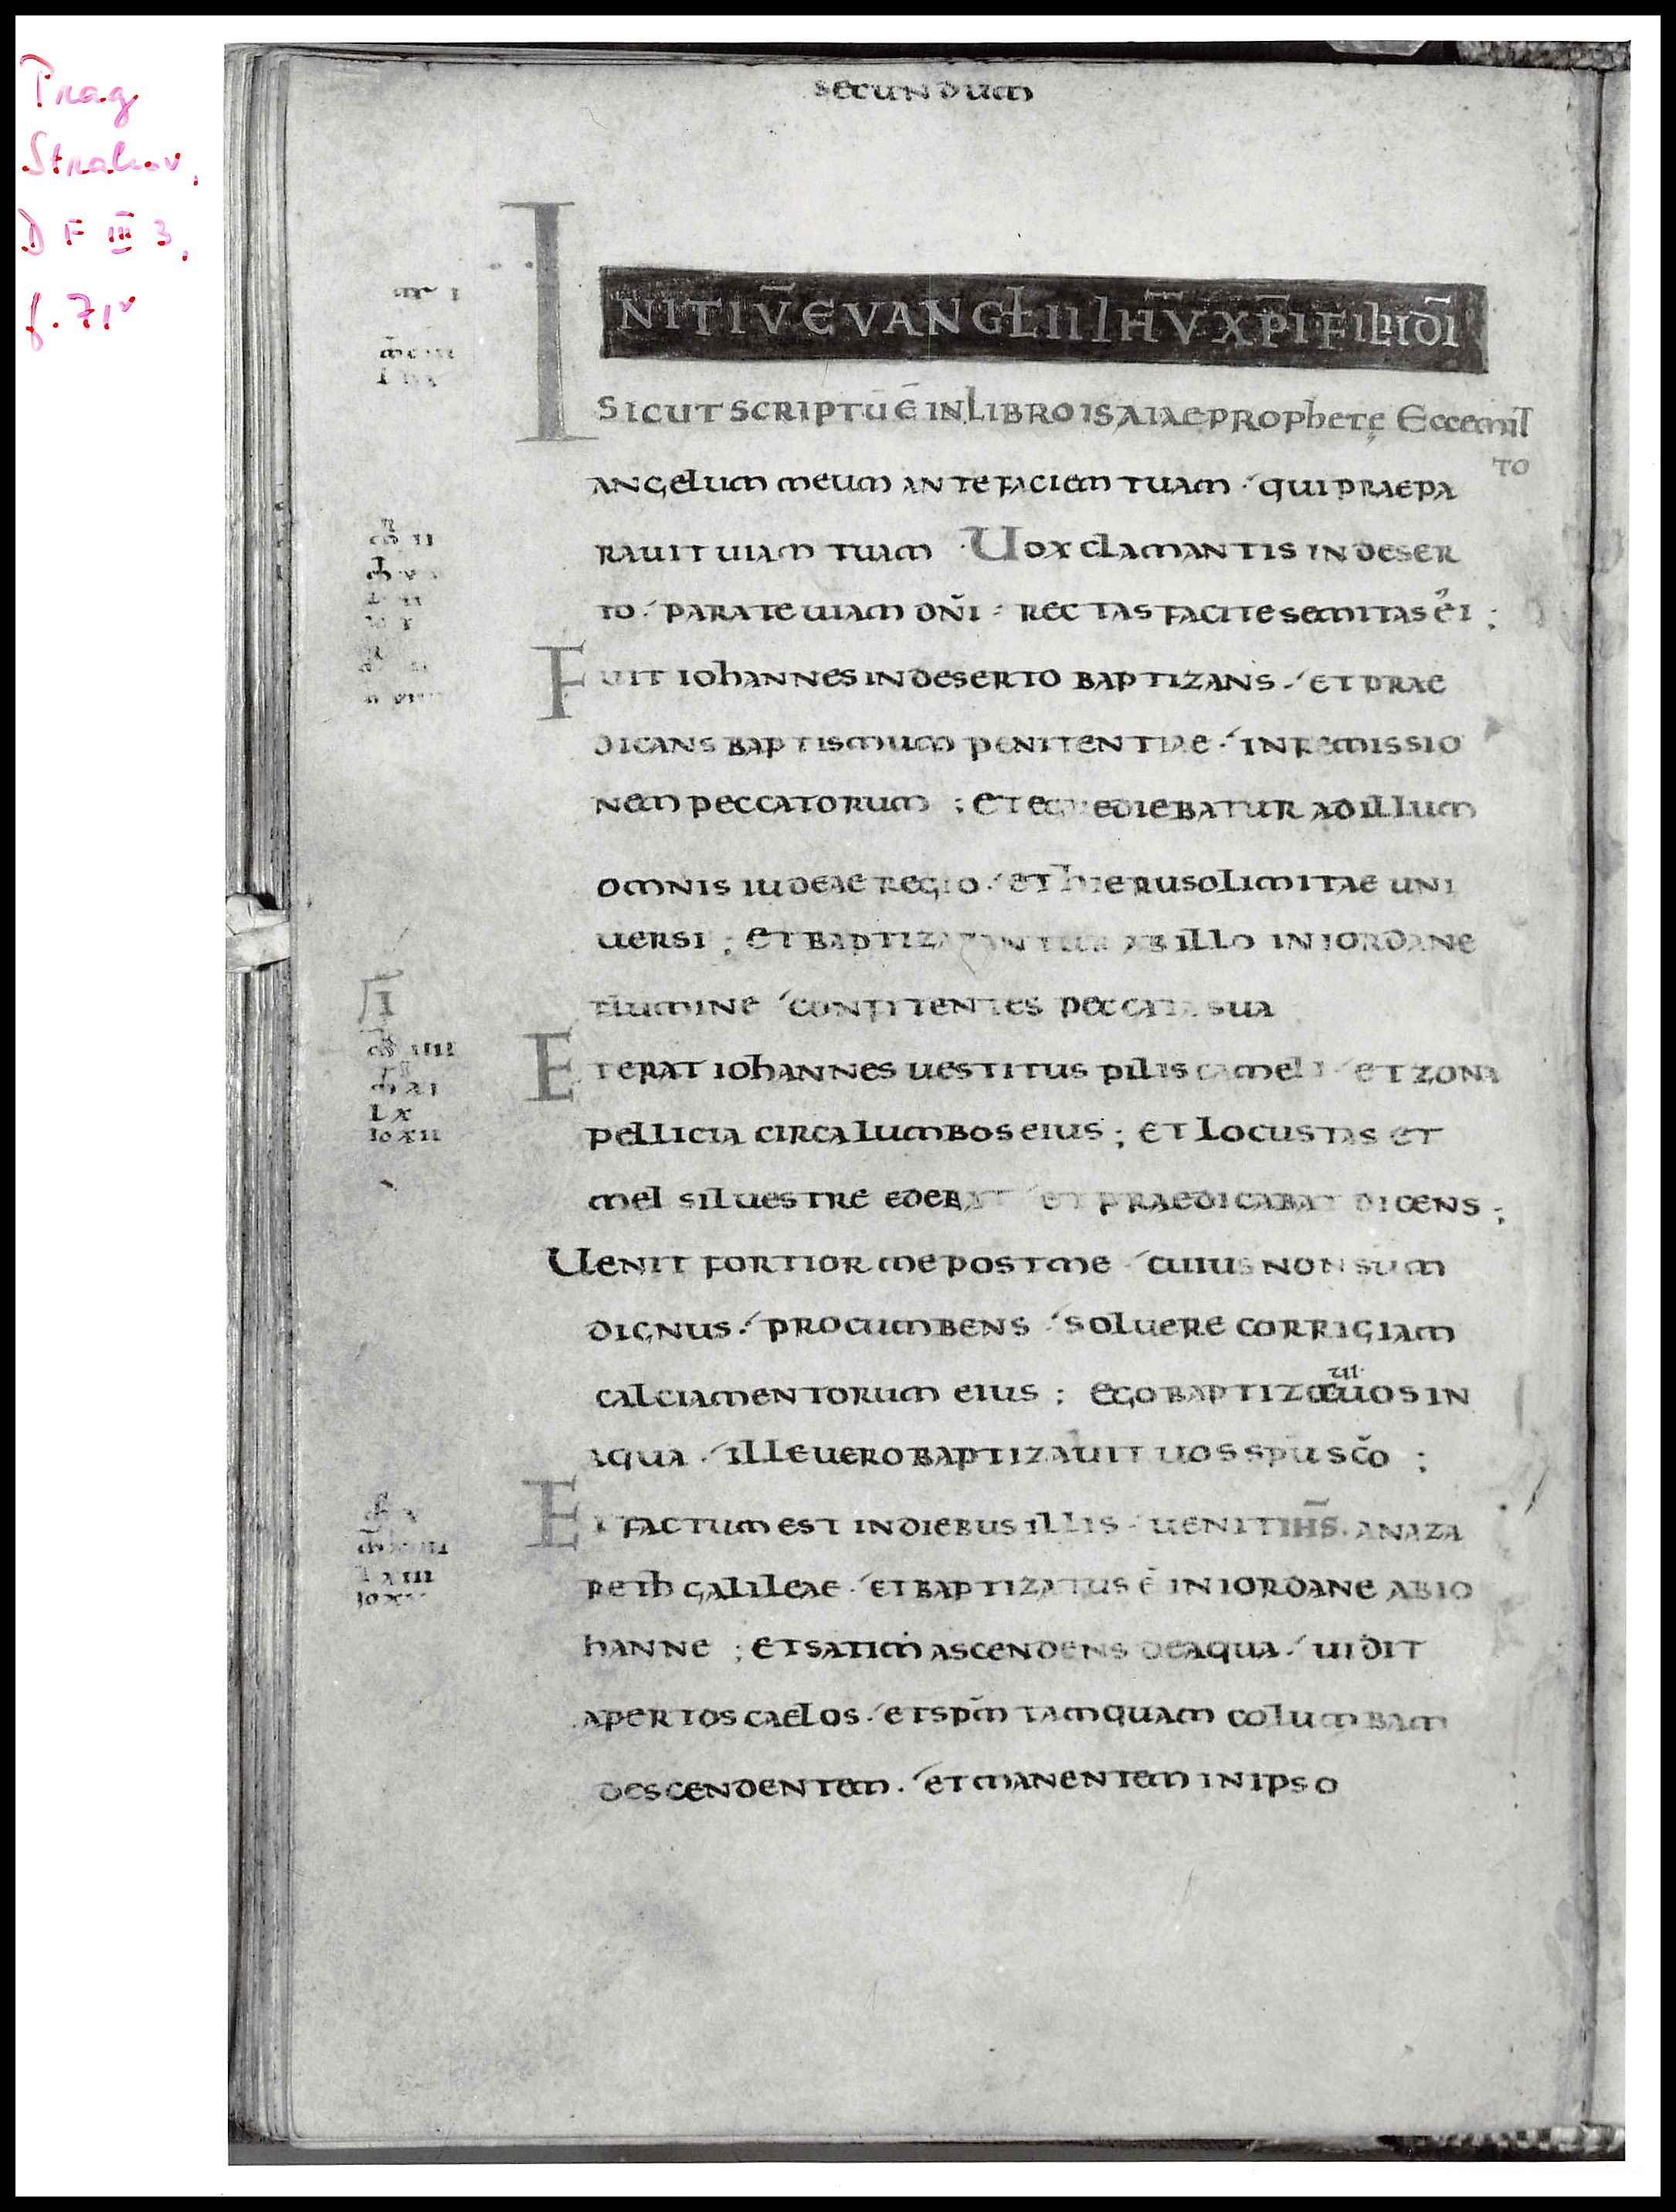 Prag
Strahov,
D F III 3,
f. 71v
secundum
INITIV̄ EVANGŁII IHV̄ XP̄I FILII DĪ
SICUT SCRIPTŪ Ē IN LIBRO ISAIAE PROPhetę Ecce mit
TO
angelum meum ante faciem tuam qui praepa
rauit uiam tuam Uox clamantis in deser
to parate uiam dñi rectas facite semitas ei ;
Fuit iohannes in deserto baptizans et prae
dicans baptismum penitentiae in remissio
nem peccatorum ; et egrediebatur ad illum
omnis iudeae regio et hierusolimitae uni
uersi ; et baptizabantur ab illo in iordane
flumine confitentes peccata sua
I
Et erat iohannes uestitus pilis cameli et zona
L x
Io xii
pellicia circa lumbos eius ; et locustas et
mel siluestre edebat et praedicabat dicens ;
Uenit fortior me post me cuius non sum
dignus procumbens soluere corrigiam
calciamentorum eius ; ego baptizaui uos in
aqua ille uero baptizauit uos spu sc̄o ;
Et factum est in diebus illis uenit ihs̄ . a naza
reth galileae et baptizatus ē in iordane ab io
hanne ; et satim ascendens de aqua uidit
apertos caelos et spm̄ tamquam columbam
descendentem . et manentem in ipso